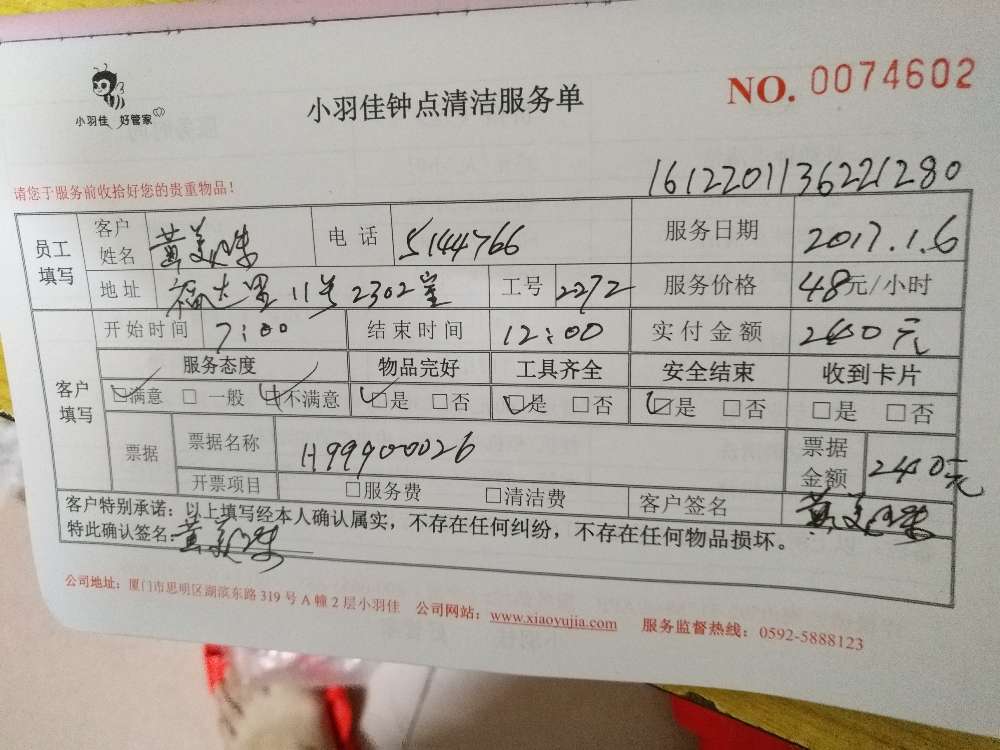 小羽佳 好管家
小羽佳钟点清洁服务单
NO. 0074602
1612201136221280
请您于服务前收拾好您的贵重物品!
员工填写 客户姓名 黄美珠 电话 5144766 服务日期 2017.1.6
地址 福太里11号2302室 工号 2272 服务价格 48元/小时
客户填写 开始时间 7:00 结束时间 12:00 实付金额 240元
服务态度 物品完好 工具齐全 安全结束 收到卡片
☑满意 □一般 ☑不满意 ☑是 □否 ☑是 □否 ☑是 □否 □是 □否
票据 票据名称 H99900026 票据金额 240元
开票项目 □服务费 □清洁费 客户签名 黄美珠
客户特别承诺:以上填写经本人确认属实,不存在任何纠纷,不存在任何物品损坏。
特此确认签名:黄美珠
公司地址:厦门市思明区湖滨东路319号A幢2层小羽佳 公司网站:www.xiaoyujia.com 服务监督热线:0592-5888123